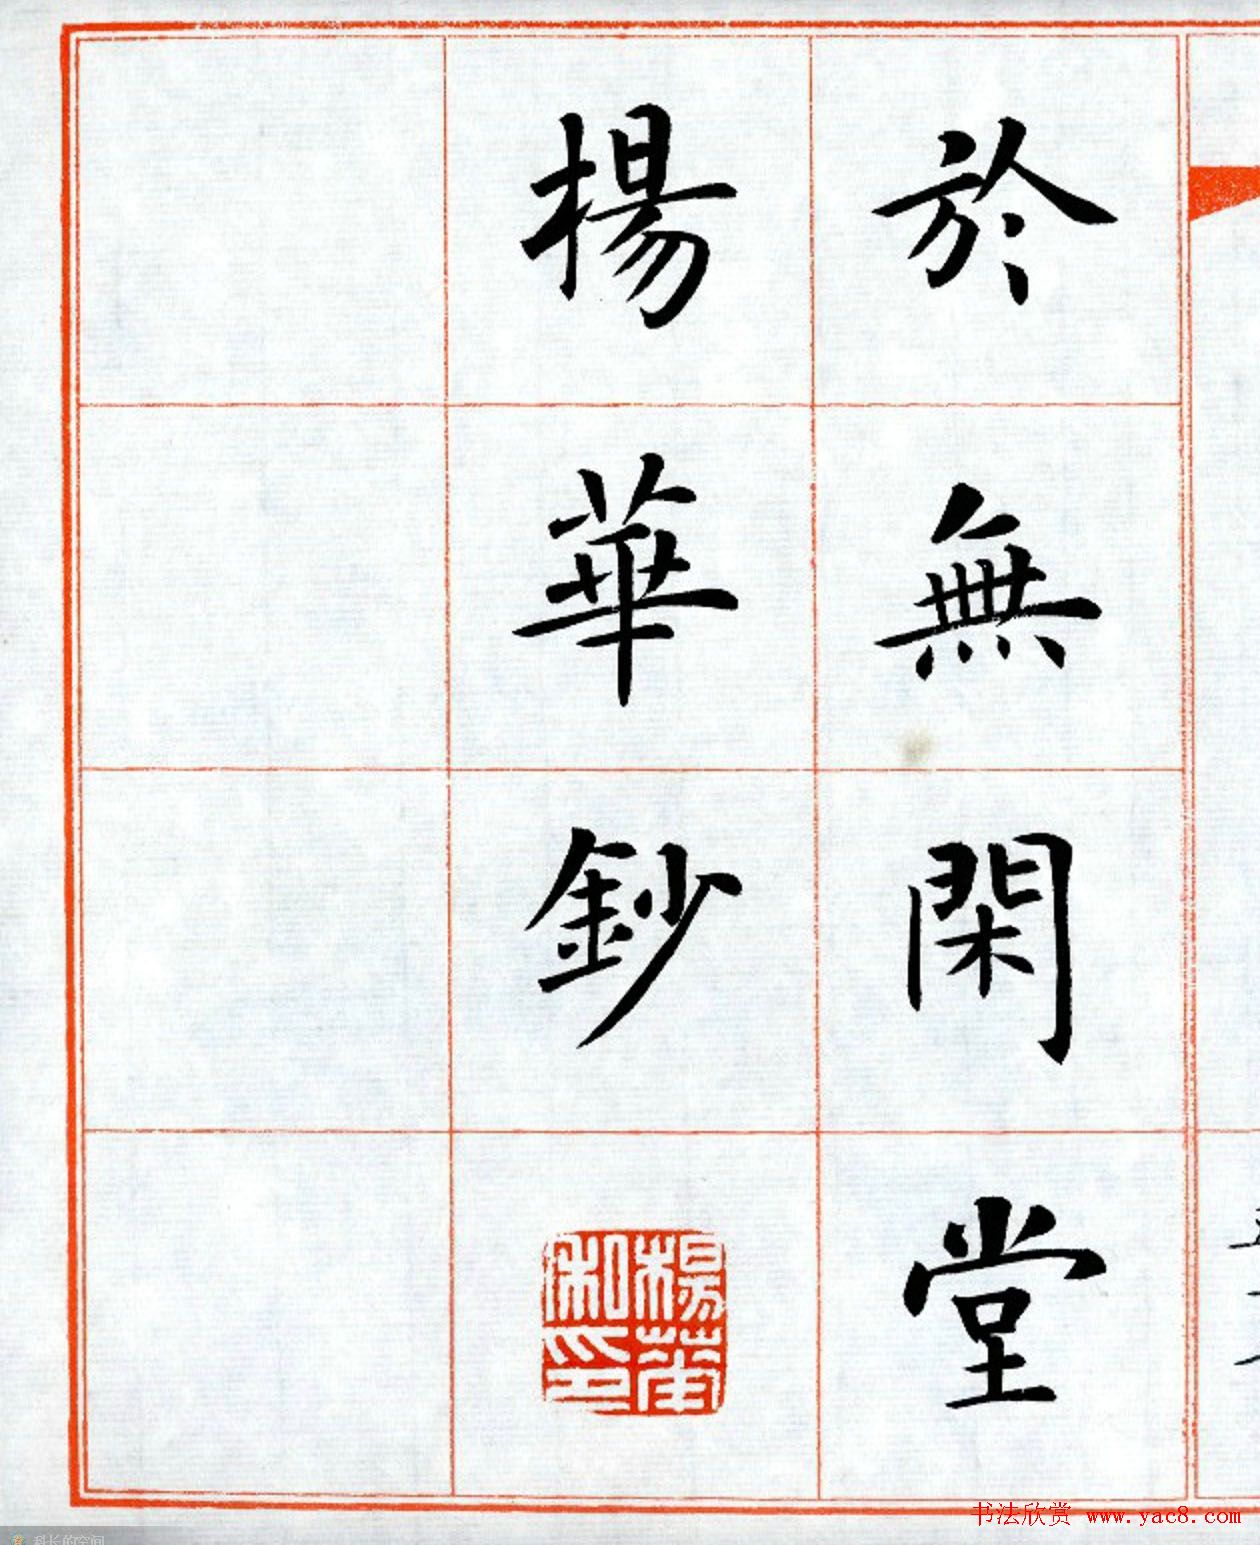 於無閑堂
楊華鈔
楊華
和印
书法欣赏 www.yac8.com
科长的空间